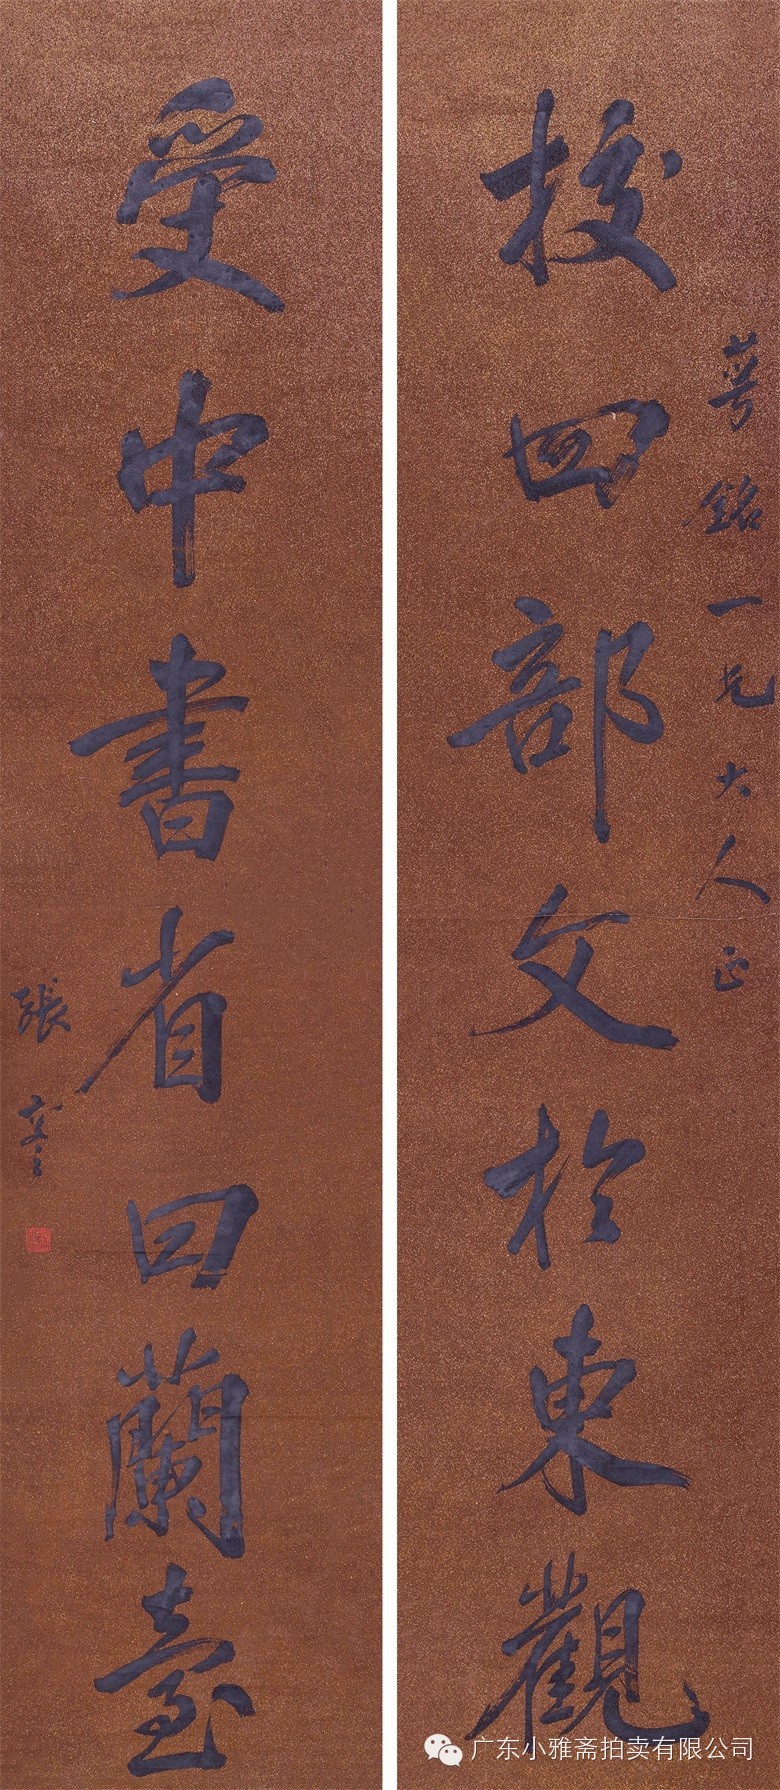 萼銘一兄大人正
校四部文於東觀
受中書省回蘭臺
張騫
广东小雅斋拍卖有限公司